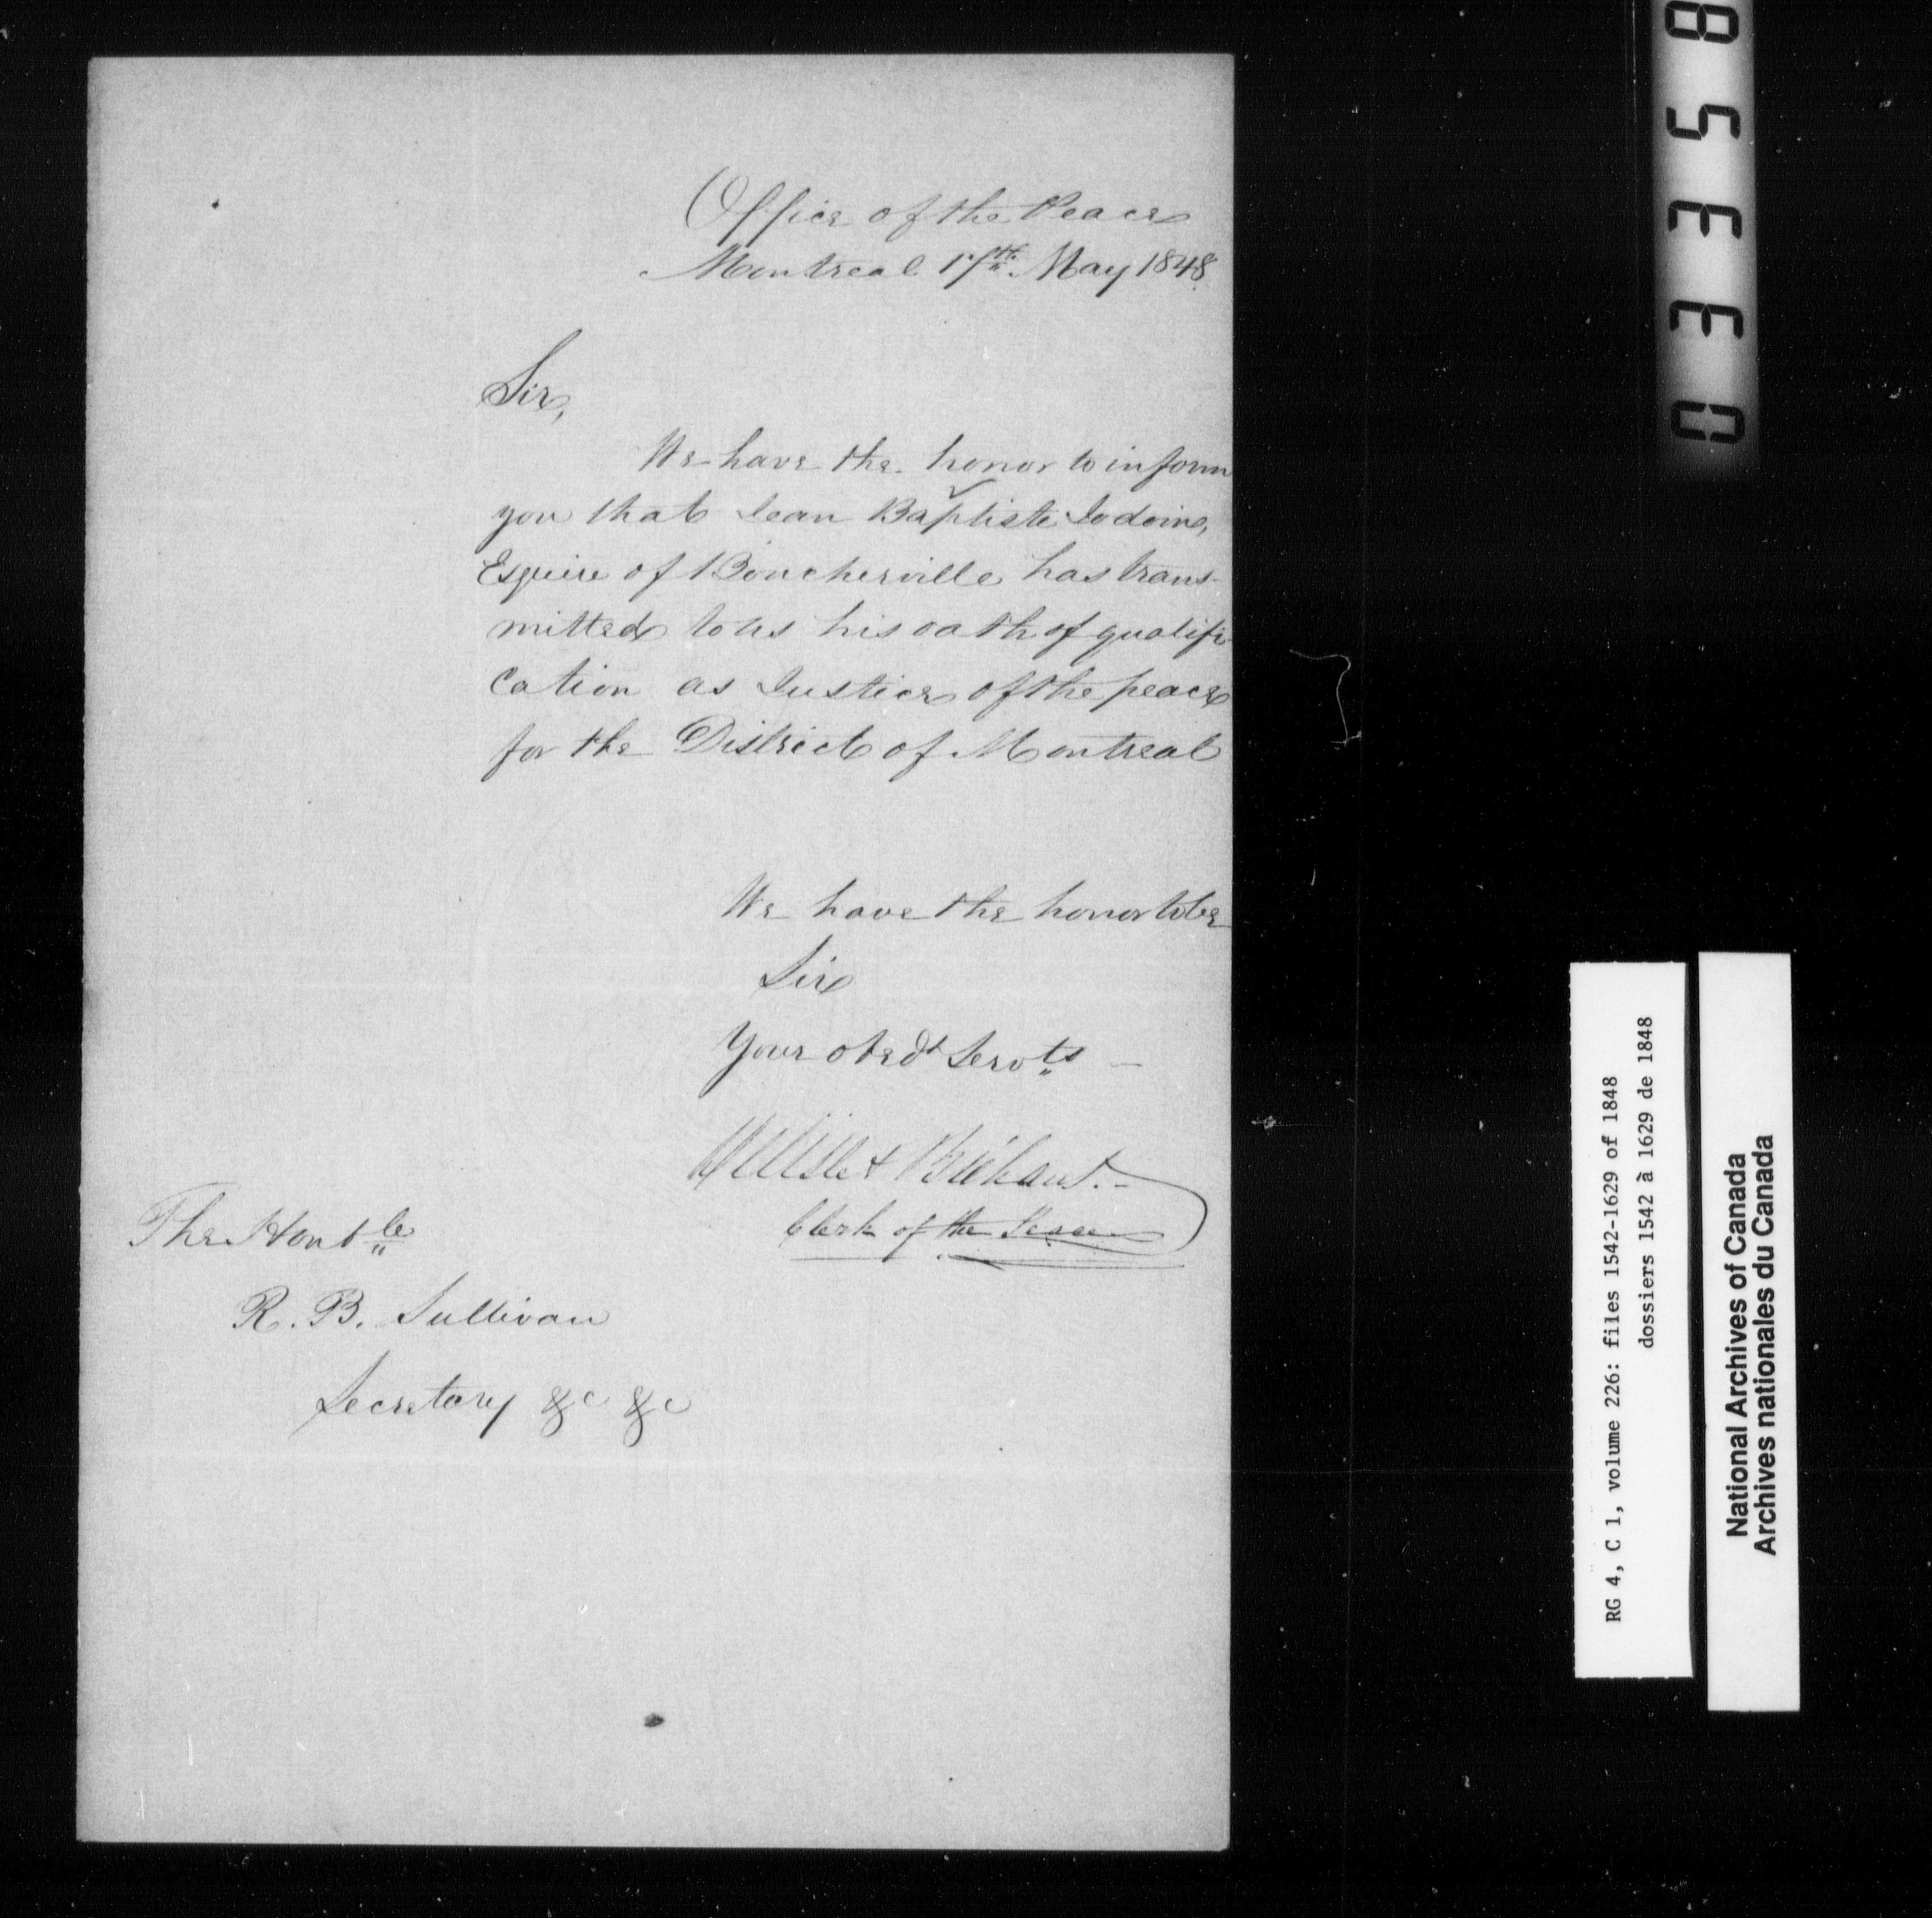 Office of the Peace
Montreal 17th May 1848
Sir,
We have the honor to inform
you that Jean Baptiste Jodoin,
Esquire of Boucherville has trans-
mitted to us his oath of qualifi-
cation as Justice of the peace
for the District of Montreal
We have the honor to be
Sir
Your obedt Servts
Delisle & Bréhaut.
Clerk of the Peace
The Honble
R. B. Sullivan
Secretary &c &c
03358
RG 4, C 1, volume 226: files 1542-1629 of 1848
dossiers 1542 à 1629 de 1848
National Archives of Canada
Archives nationales du Canada